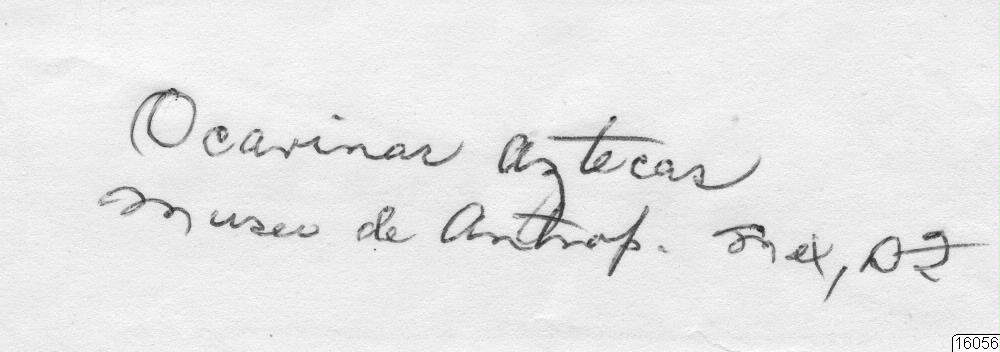 Ocarinas aztecas
Museo de Antrop. Mex, DF
16056